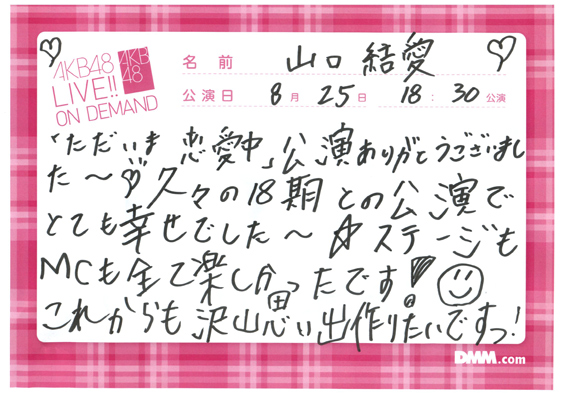 AKB48
LIVE!!
ON DEMAND
AKB
48
名前 山口 結愛
公演日 8月 25日 18:30公演
「ただいま 恋愛中」公演ありがとうございまし
た〜♡久々の18期との公演で
とても幸せでした〜☆ステージも
MCも全て楽しかったです!
これからも沢山思い出作りたいですっ!
DMM.com